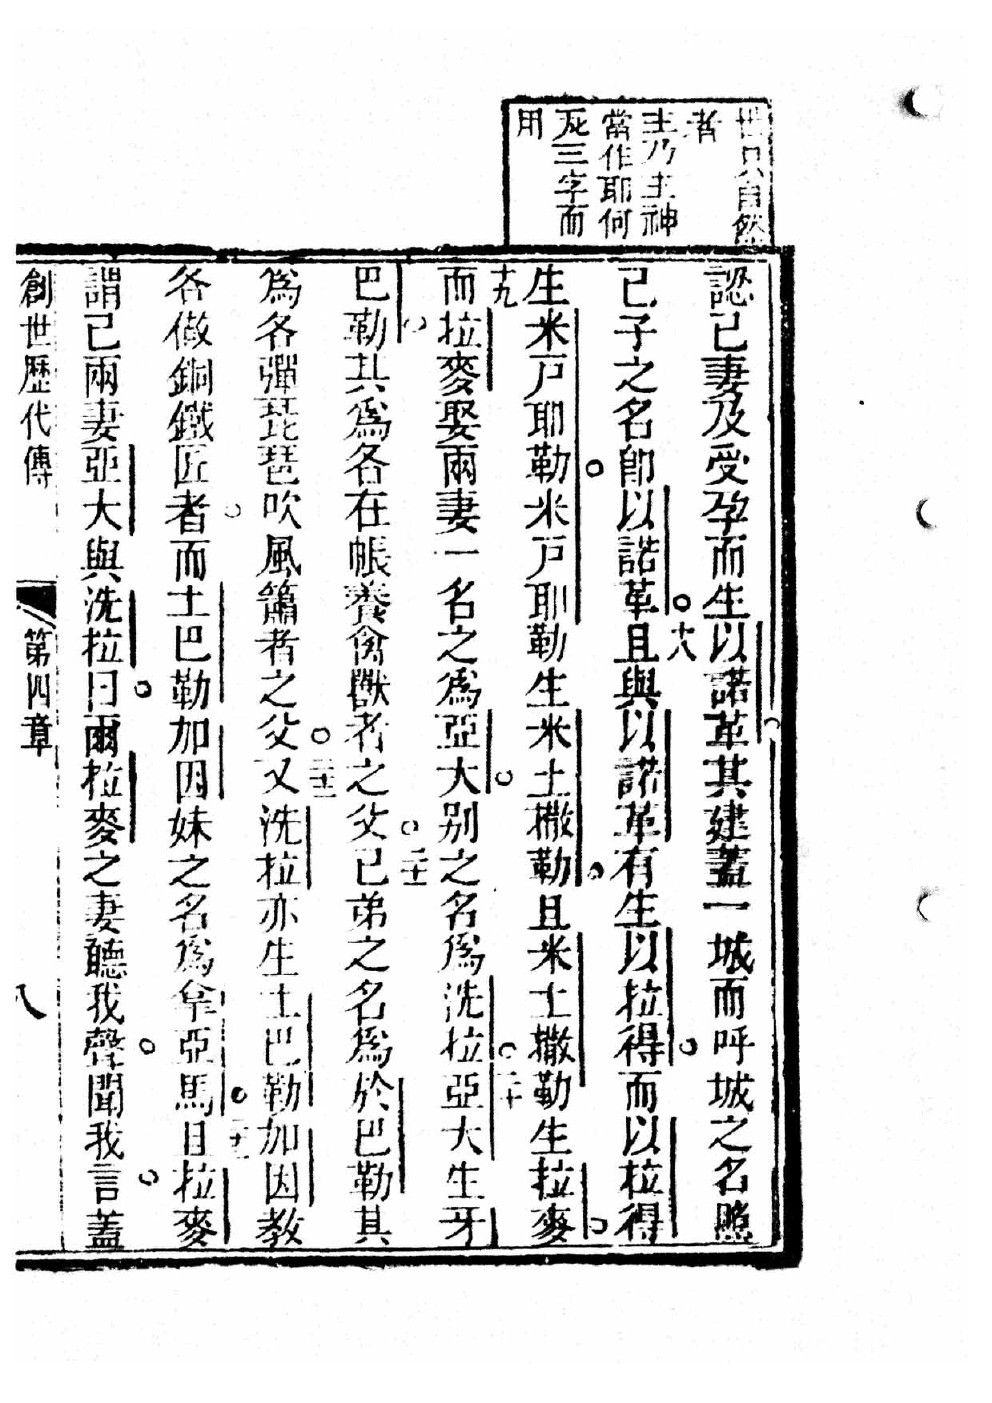 世只自然
者
主乃主神
當作耶何
瓦三字而
用
認己妻及受孕而生以諾革其建蓋一城而呼城之名照
己子之名卽以諾革○十八且與以諾革有生以拉得○而以拉得
生米戸耶勒○米戸耶勒生米土撒勒○且米土撒勒生拉麥○
十九而拉麥娶兩妻一名之爲亞大○别之名爲洗拉○二十亞大生牙
巴勒○其爲各在帳養禽獸者之父○二十一己弟之名爲於巴勒其
爲各彈琵琶吹風簫者之父○二十二又洗拉亦生土巴勒加因教
各做銅鐵匠者○而土巴勒加因妹之名爲拿亞馬○二十三且拉麥
謂己兩妻亞大與洗拉曰○爾拉麥之妻聽我聲○聞我言○蓋
創世歷代傳　第四章　八